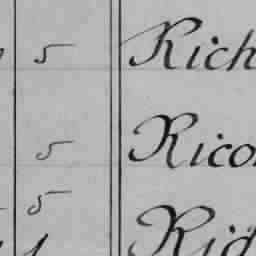 5 Rich
5 Rico
5 Rid